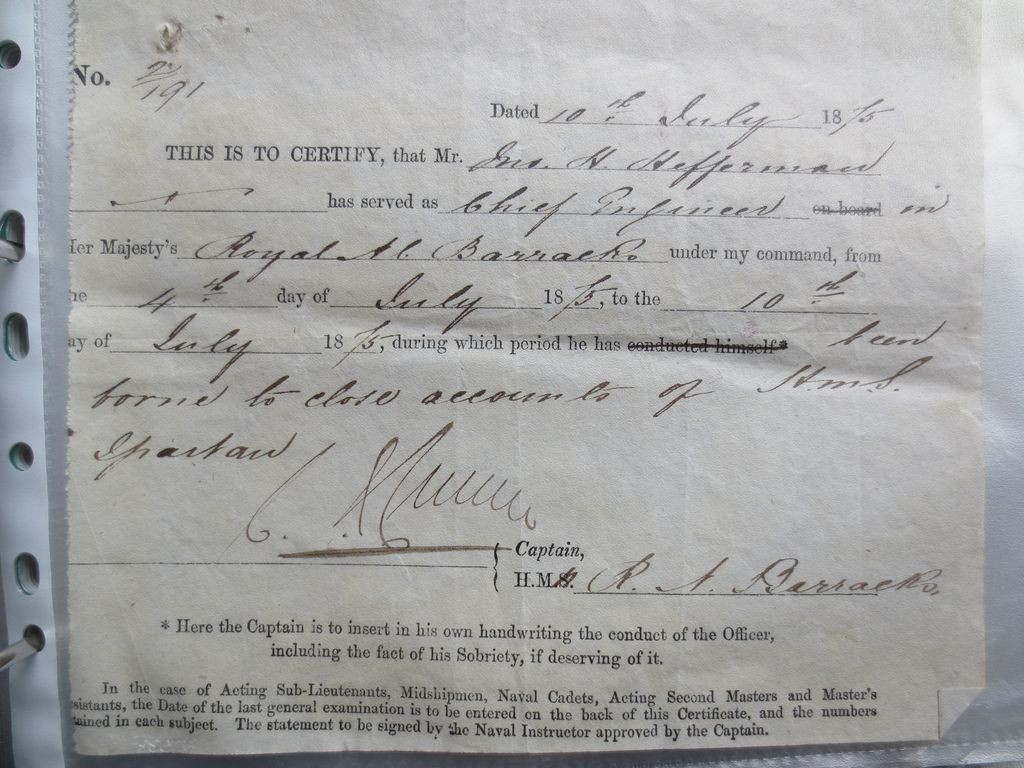 No. 27/191
Dated 10th July 1875
THIS IS TO CERTIFY, that Mr. Jno. H. Hefferman
has served as Chief Engineer on board in
Her Majesty's Royal Nl. Barracks under my command, from
he 4th day of July 1875, to the 10th
ay of July 1875, during which period he has conducted himself* been
borne to close accounts of H.M.S.
Spartan
Captain,
H.M.S. R. N. Barracks,
* Here the Captain is to insert in his own handwriting the conduct of the Officer,
including the fact of his Sobriety, if deserving of it.
In the case of Acting Sub-Lieutenants, Midshipmen, Naval Cadets, Acting Second Masters and Master's
sistants, the Date of the last general examination is to be entered on the back of this Certificate, and the numbers
tained in each subject. The statement to be signed by the Naval Instructor approved by the Captain.